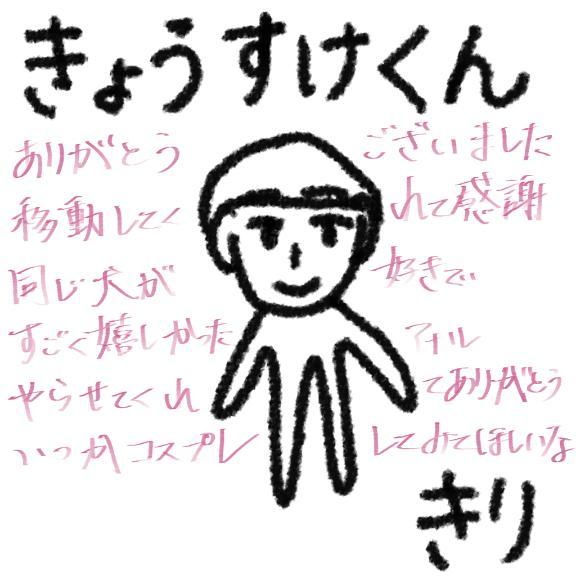 きょうすけくん
ありがとう ございました
移動してく れて感謝
同じ犬が 好きで
すごく嬉しかった フォル
やらせてくれ てありがとう
いつかコスプレ してみてほしいな
きり